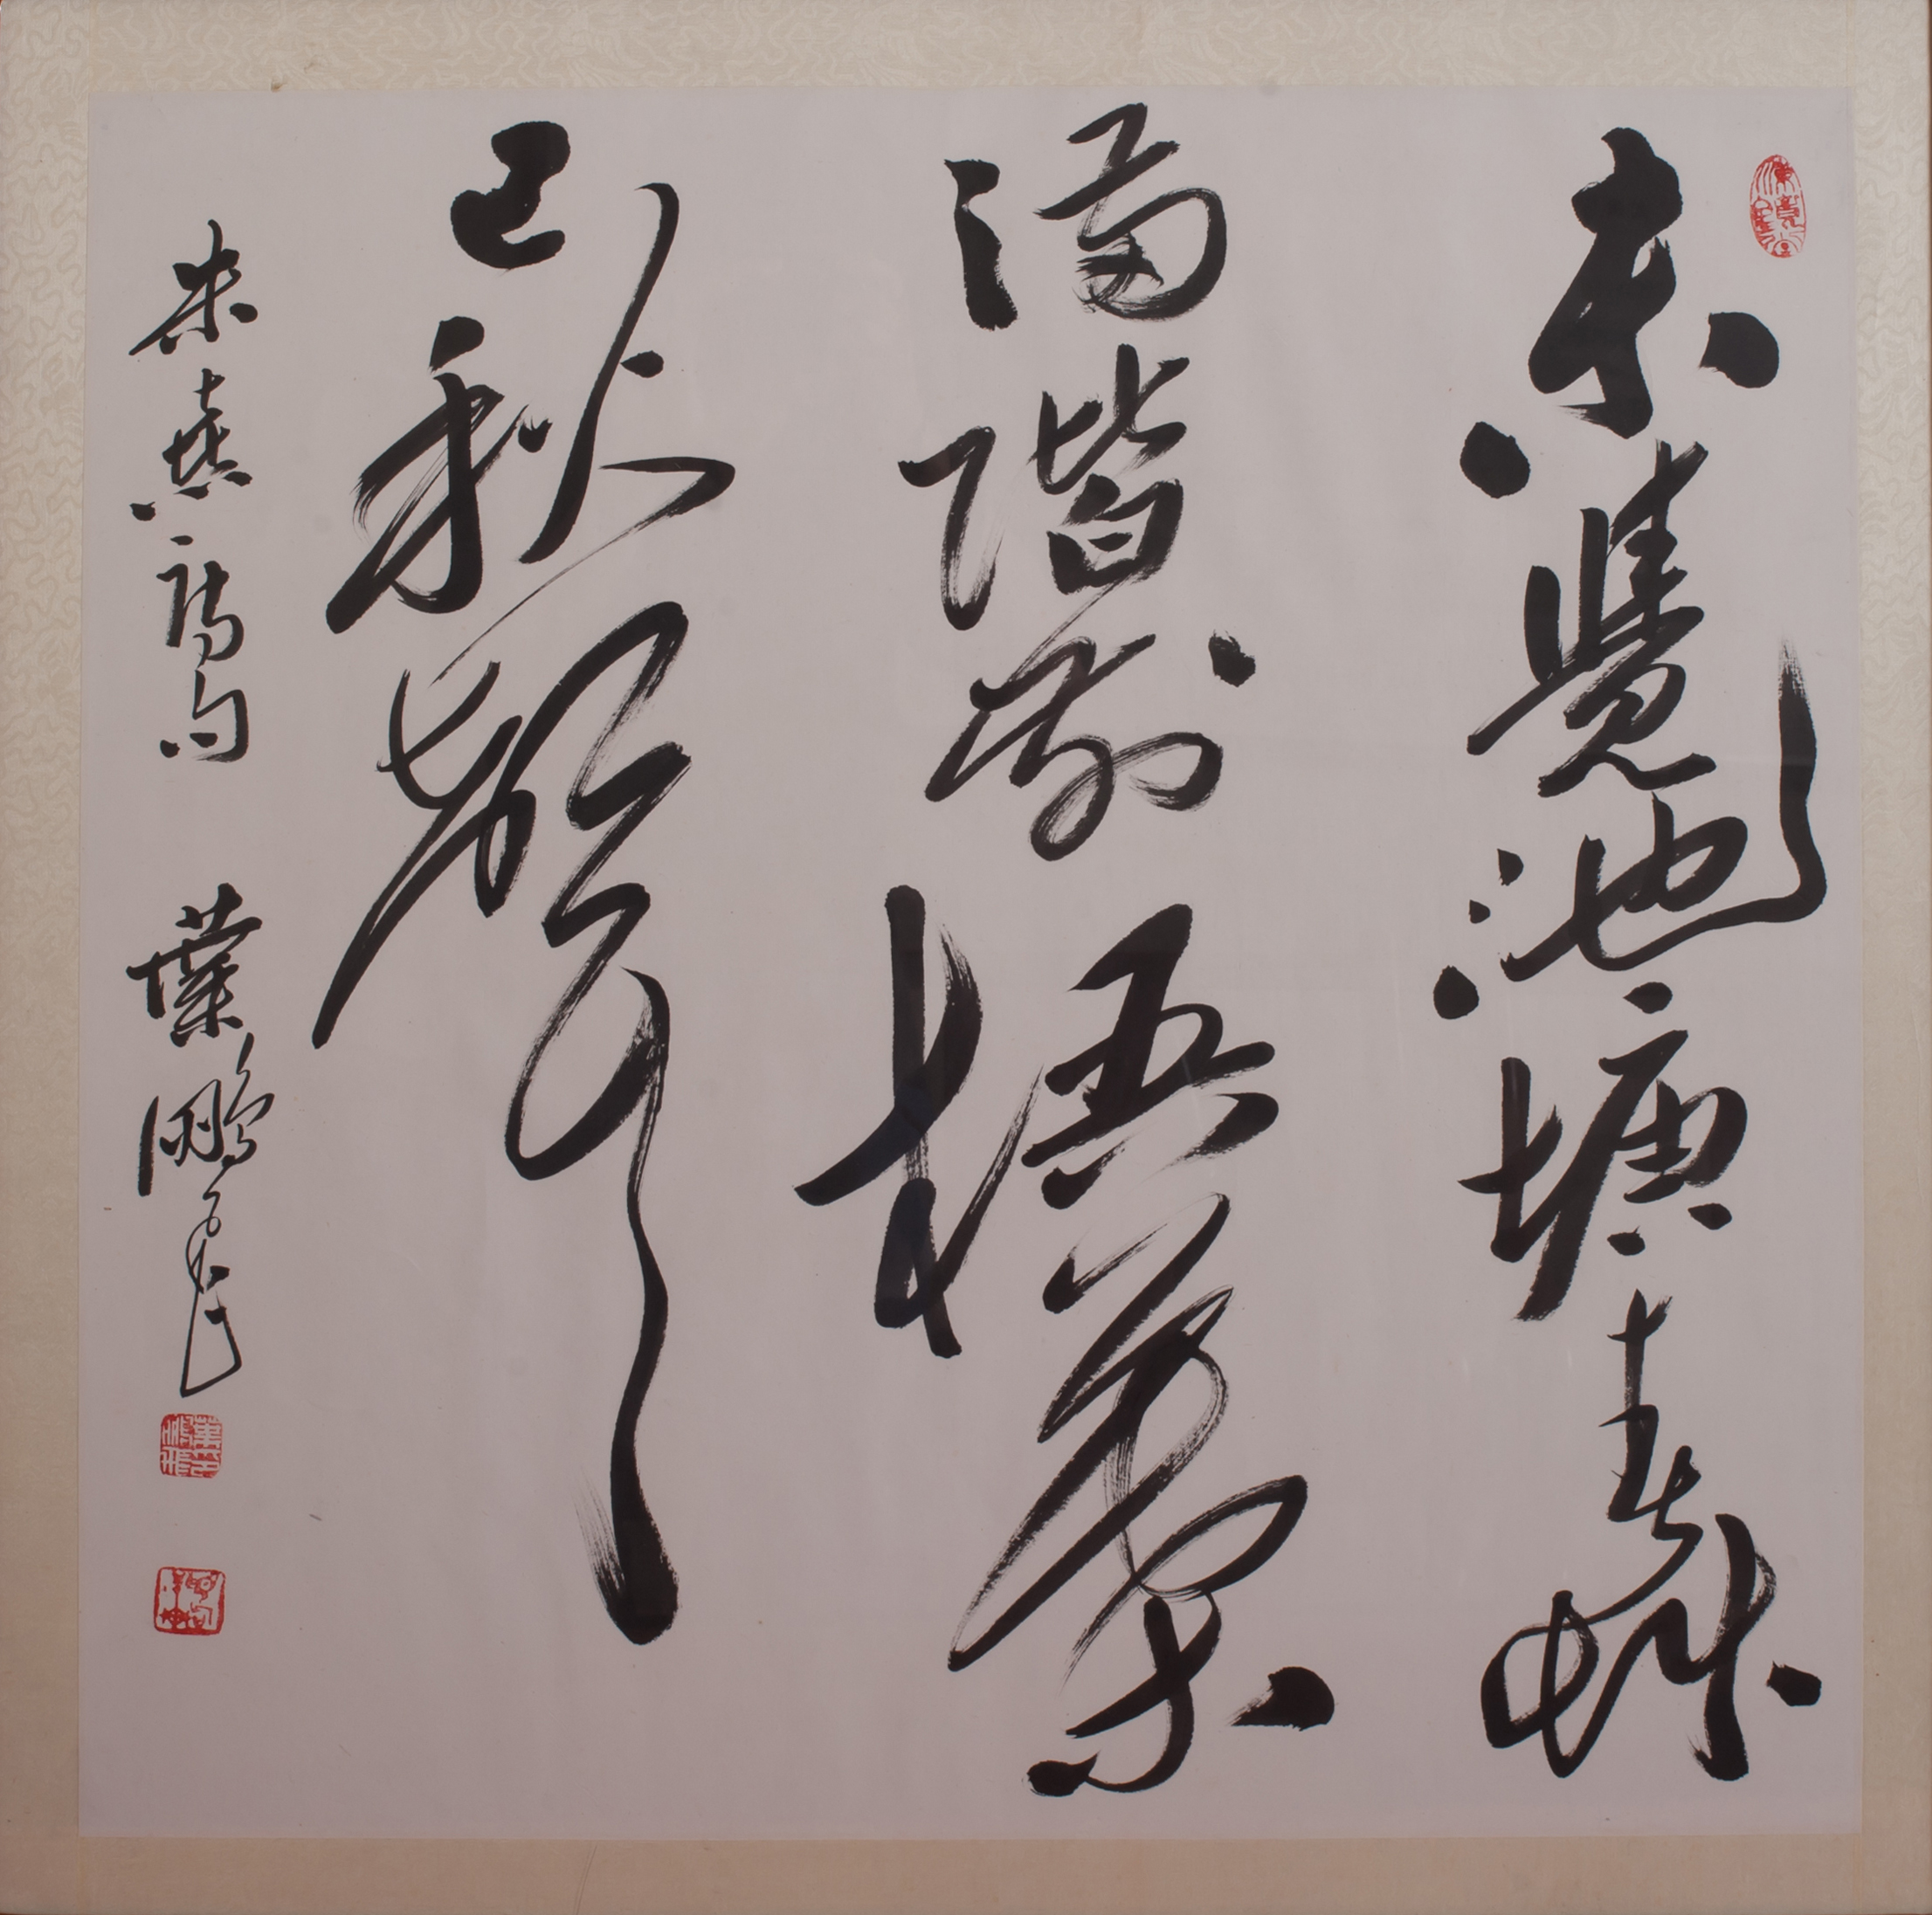 未覺池塘春艸
滿階前梧葉
已秋聲
朱熹詩句 葉鵬飛